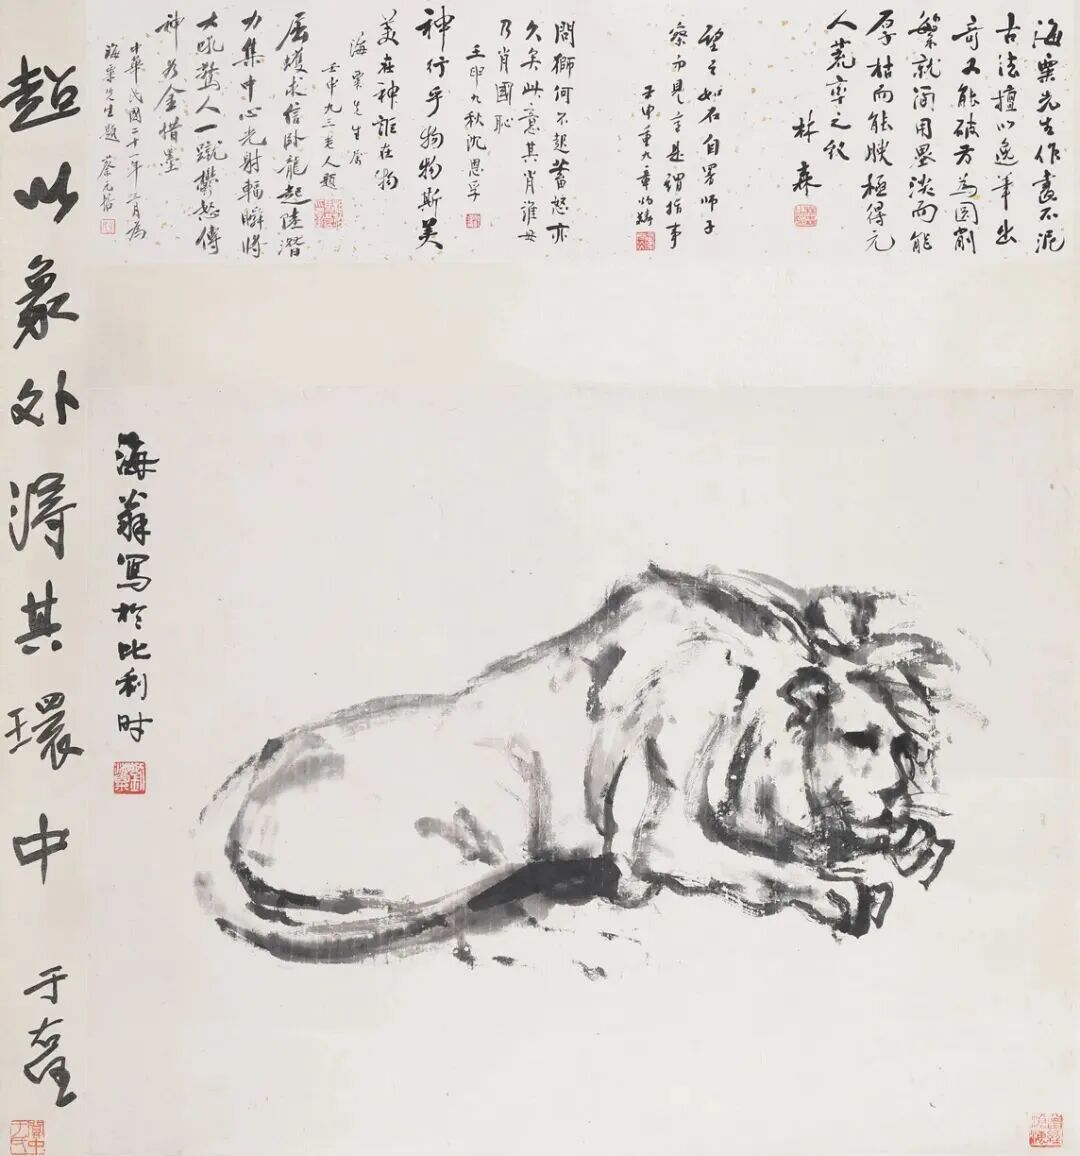 海粟先生作畫不泥
古法擅以逸筆出
奇又能破方為圓削
繁就簡用墨淡而能
厚枯而能腴極得元
人荒率之致
林森
望之如石自署師子
察而見言是謂指事
壬申重九章炳麟
問獅何不起蓄怒亦
久矣此意其肖誰毋
乃肖國恥
壬申九秋沈恩孚
神行乎物物斯美
美在神詎在物
海粟先生屬
壬申九三老人題
屈蠖求信卧龍起陸潛
力集中心光射輻瞬將
大吼驚人一蹴鬱怒傳
神為金惜墨
中華民國二十一年月為
海粟先生題 蔡元培
海翁寫於比利时
超以象外得其環中
于右任
關中于氏